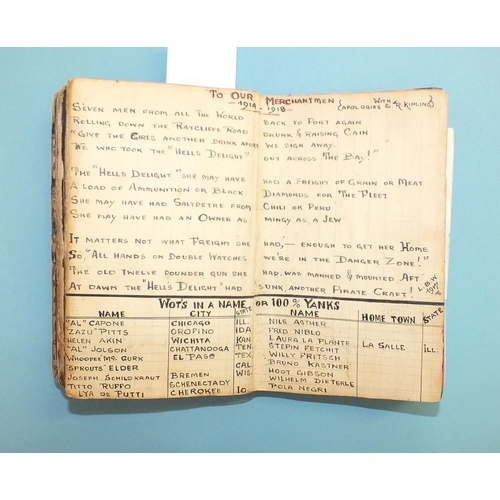 To Our Merchantmen {With Apologies to R. Kipling}
1914 - 1918
Seven men from all the World
Back to Port again
Rolling down the Ratcliffe Road
Drunk & Raising Cain
"Give the Girls another drink afore
We sign away.
We who took the "Hells Delight"
out across The Bay!"
The "Hells Delight" she may have
had a freight of Grain or Meat
A load of Ammunition or Black
Diamonds for The Fleet
She may have had Saltpetre from
Chili or Peru
She may have had an Owner as
mingy as a Jew
It matters not what Freight she
had,- enough to get her Home
So, "All hands on Double Watches
we're in the Danger Zone!"
The old Twelve Pounder gun she
had, was manned & mounted Aft
At dawn the "Hells Delight" had
sunk, another Pirate Craft!
L.B.W.
1917
Wot's in a name, or 100% Yanks
NAME CITY STATE NAME HOME TOWN STATE
"Al" Capone Chicago Ill.
"Zazu" Pitts Grofino Ida
Helen Akin Wichita Kan.
"Al" Jolson Chattanooga Ten
Whoopee Mc. Gurk El Paso Tex.
"Sprouts" Elder Cal.
Joseph Schildkraut Bremen Wis.
Titto Ruffo Schenectady
Lya de Putti Cherokee Io.
Nils Asther
Fred Niblo
Laura La Plante La Salle Ill.
Stepin Fetchit
Willy Fritsch
Bruno Kastner
Hoot Gibson
Wilhelm Dieterle
Pola Negri